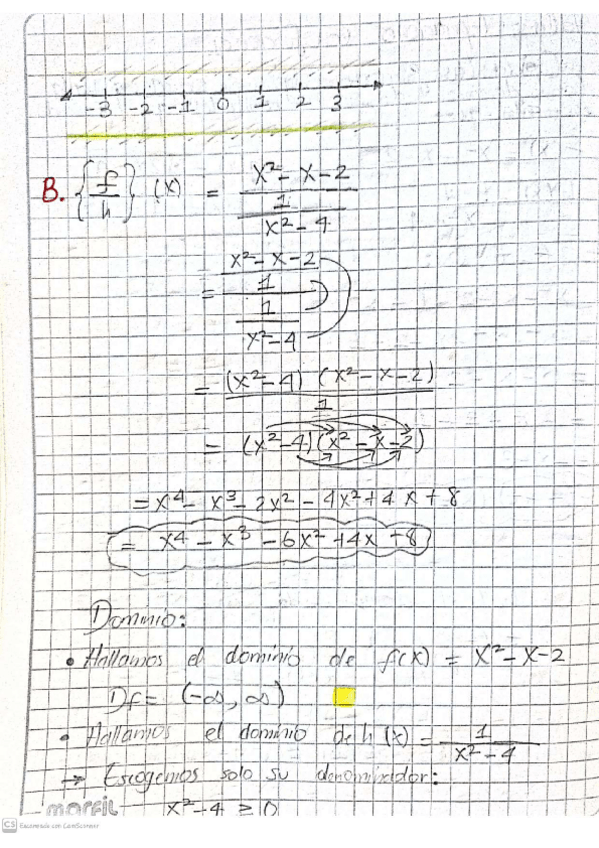 -3 -2 -1 0 1 2 3
B. {f/h} (x) = (x² - x - 2) / (1 / (x² - 4))
= ((x² - x - 2) / 1) / (1 / (x² - 4))
= (x² - 4) (x² - x - 2) / 1
= (x² - 4)(x² - x - 2)
= x⁴ - x³ - 2x² - 4x² + 4x + 8
= x⁴ - x³ - 6x² + 4x + 8
Dominio:
• Hallamos el dominio de f(x) = x² - x - 2
Df = (-∞, ∞)
• Hallamos el dominio de h (x) = 1 / (x² - 4)
→ Escogemos solo su denominador:
x² - 4 ≥ 0
marfil
CS Escaneado con CamScanner